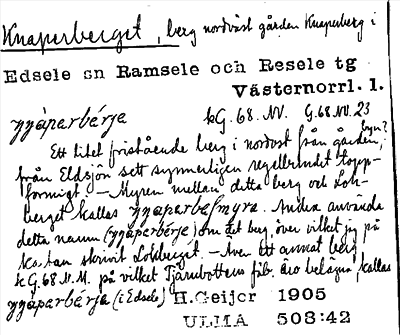 Knaperberget, berg nordväst gården Knaperberg i
Edsele sn Ramsele och Resele tg
Västernorrl. l.
kG. 68. NV. G. 68 NV. 23
Ett litet fristående berg i nordväst från gården,
från Eldsjön sett synnerligen regelbundet topp-
formigt. – Myren mellan detta berg och Loh-
berget kallas Andra använda
detta namn om det berg, över vilket jag på
skrivit Lohberget. – Även ett annat berg
kG. 68 N. M. på vilket Tjärnbottens fäb. äro belägna, kallas
(i Edsele) H.Geijer 1905
ULMA 508:42